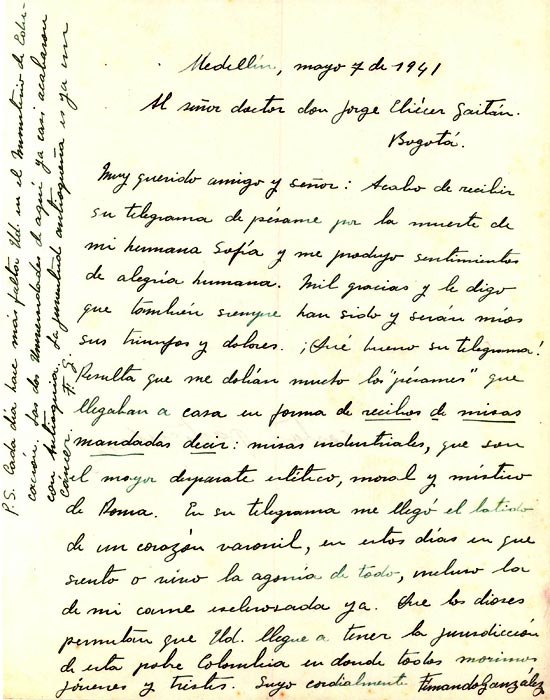 Medellín, mayo 7 de 1941
Al señor doctor don Jorge Eliécer Gaitán.
Bogotá.
Muy querido amigo y señor: Acabo de recibir
su telegrama de pésame por la muerte de
mi hermana Sofía y me produjo sentimientos
de alegría humana. Mil gracias y le digo
que también siempre han sido y serán míos
sus triunfos y dolores. ¡Qué bueno su telegrama!
Resulta que me dolían mucho los "pésames" que
llegaban a casa en forma de recibos de misas
mandadas decir: misas industriales, que son
el mayor disparate estético, moral y místico
de Roma. En su telegrama me llegó el latido
de un corazón varonil, en estos días en que
siento o vivo la agonía de todo, incluso la
de mi carne esclerosada ya. Que los dioses
permitan que Ud. llegue a tener la jurisdicción
de esta pobre Colombia en donde todos morimos
jóvenes y tristes. Suyo cordialmente Fernando González
P.S. Cada día hace más falta Ud. en el Ministerio de Edu-
cación. Las dos Universidades de aquí ya casi acabaron
con Antioquia. La juventud antioqueña es ya un
cáncer. F. G.